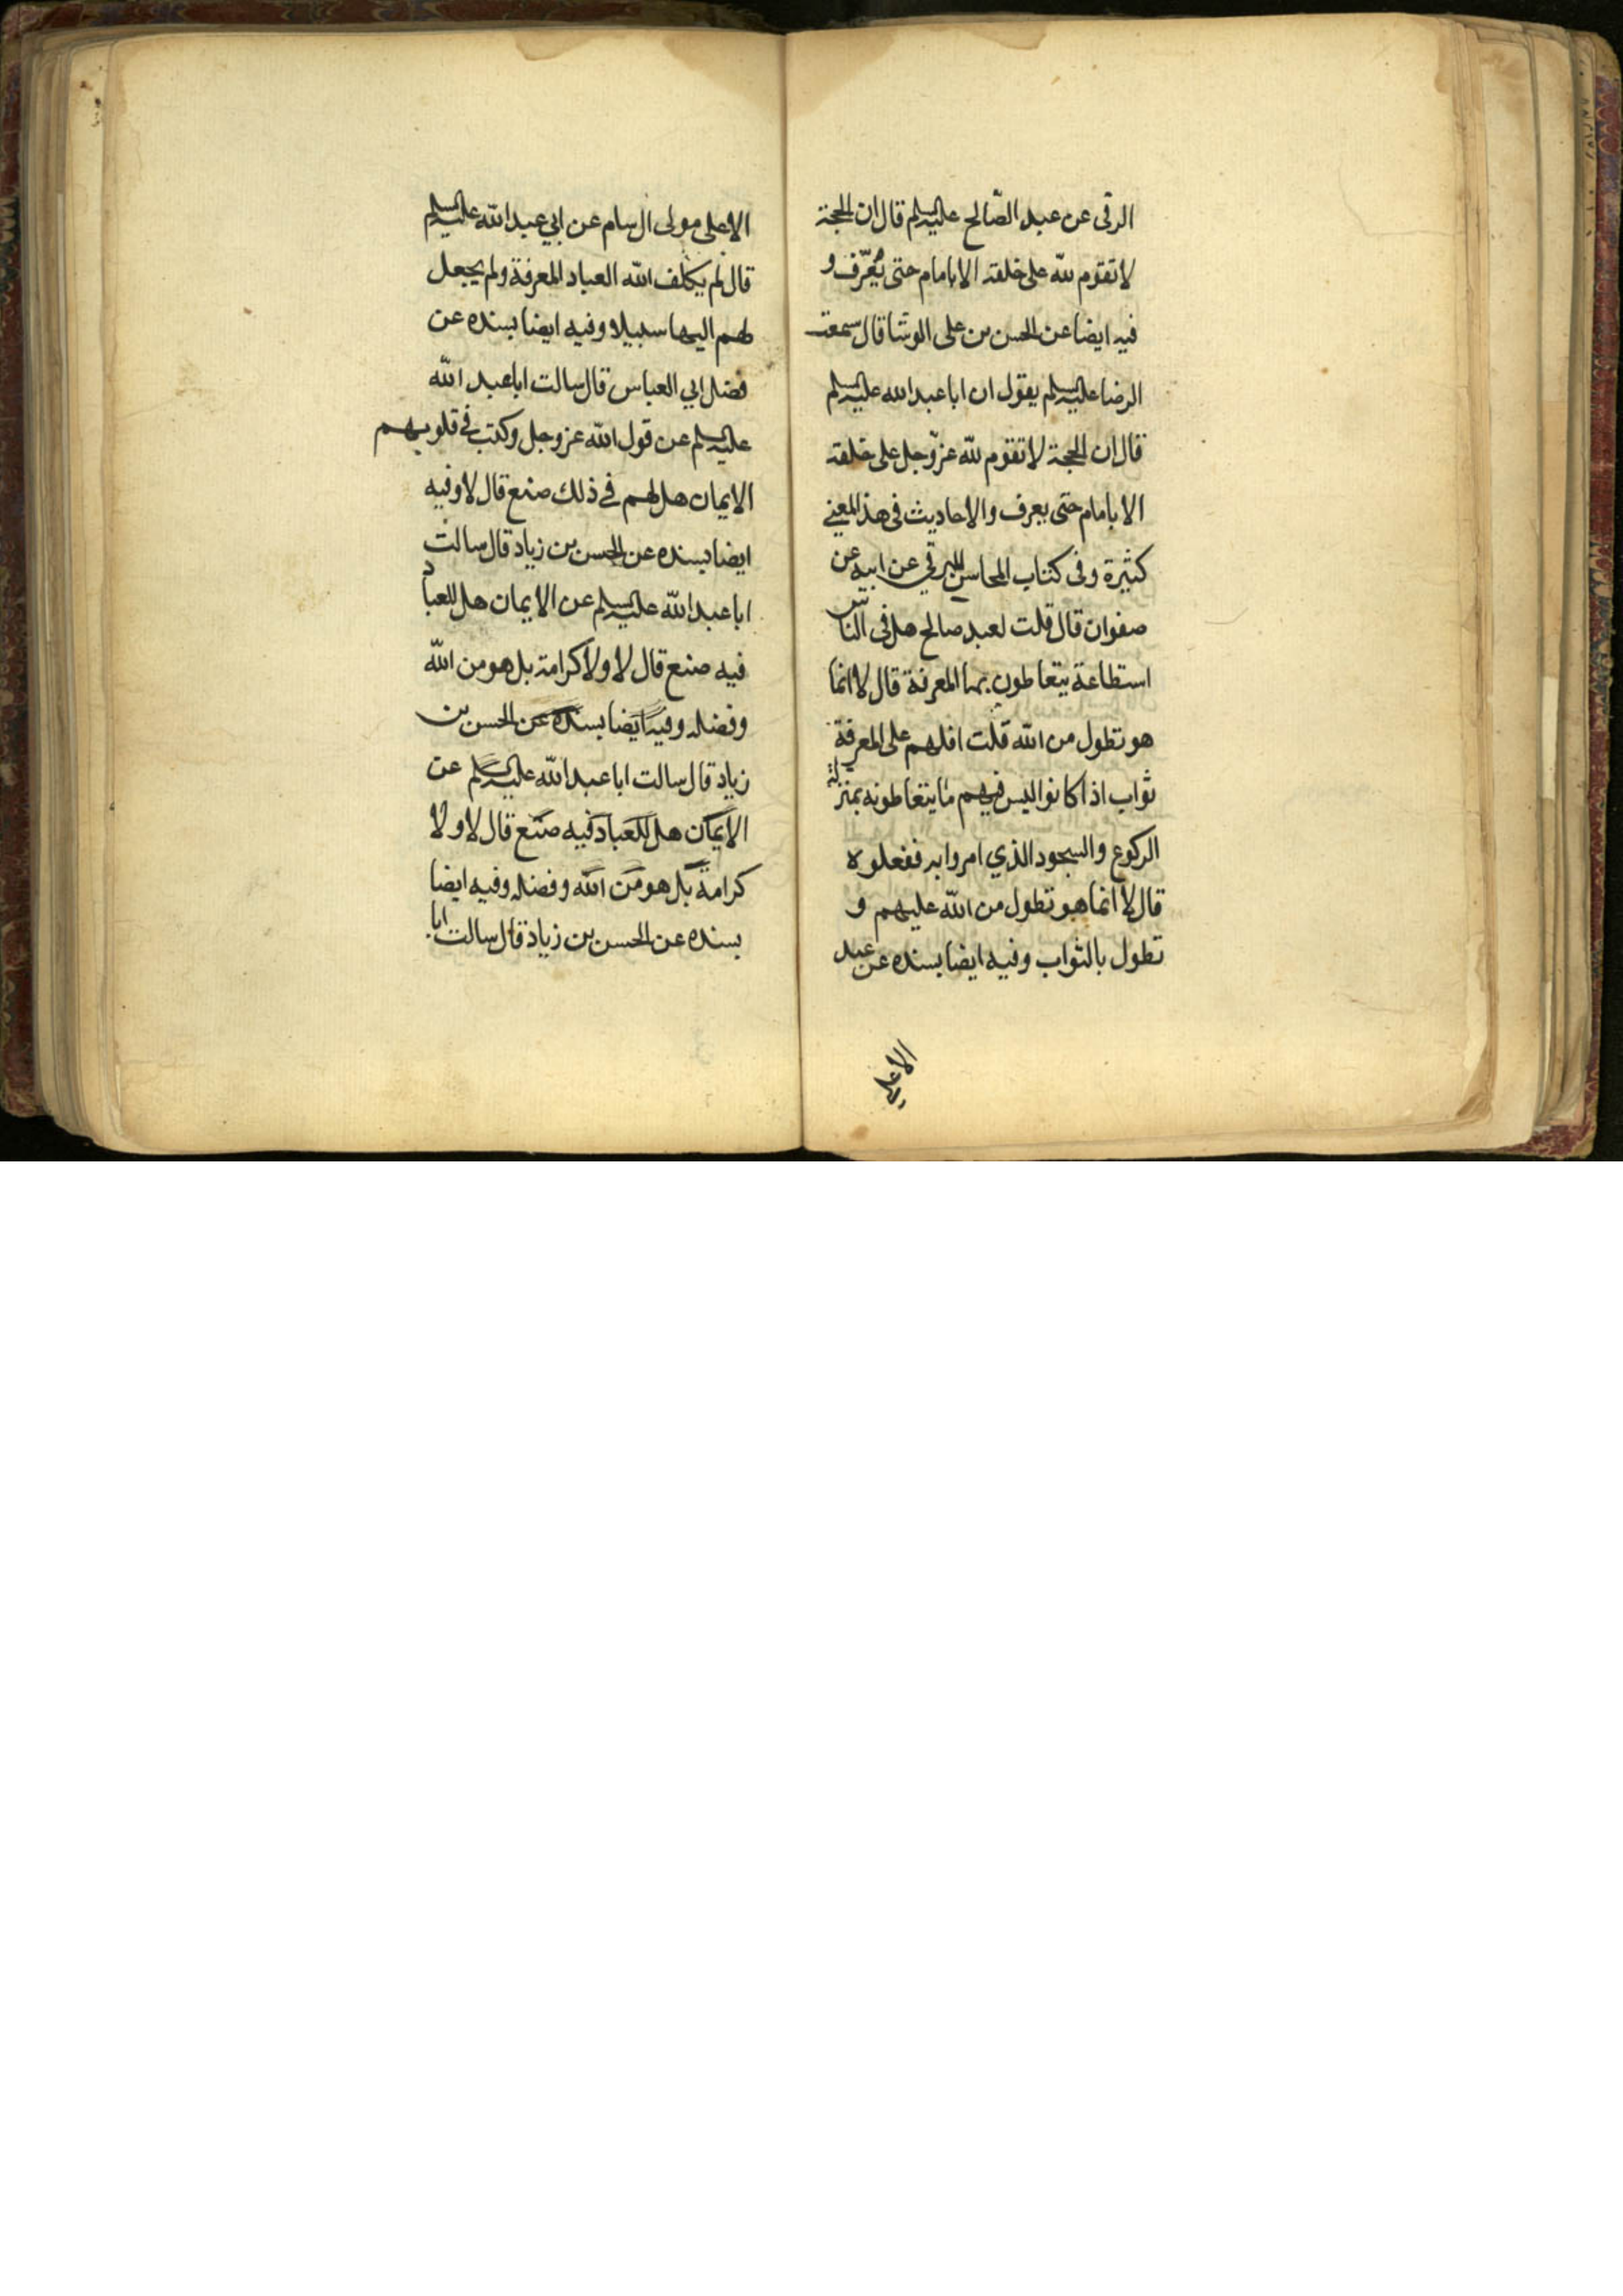 الرقى عن عبد الصّالح عليه السلم قال ان الحجة
لا تقوم لله على خلقه الا بامام حتى يُعَرّف و
فيه ايضا عن الحسن بن على الوشا قال سمعت
الرضا عليه السلم يقول ان ابا عبد الله عليه السلم
قال ان الحجة لا تقوم لله عزّ وجل على خلقه
الا بامام حتى يعرف والاحاديث فى هذا المعنى
كثيرة وفى كتاب المحاسن للبرقي عن ابيه عن
صفوان قال قلت لعبد صالح هل فى النّاس
استطاعة يتعاطون بها المعرفة قال لا انما
هو تطول من الله قلت افلهم على المعرفة
ثواب اذا كانوا ليس فيهم ما يتعاطونه بمنزلة
الركوع والسجود الذي امروا به ففعلوه
قال لا انما هو تطول من الله عليهم و
تطول بالثواب وفيه ايضا بسنده عن عبد
الاعلى
الاعلى مولى ال سام عن ابي عبد الله عليه السلم
قال لم يكلف الله العباد المعرفة ولم يجعل
لهم اليها سبيلا وفيه ايضا بسنده عن
فضل ابي العباس قال سالت ابا عبد الله
عليه السلم عن قول الله عز وجل وكتب في قلوبهم
الايمان هل لهم في ذلك صنع قال لا وفيه
ايضا بسنده عن الحسن بن زياد قال سالت
ابا عبد الله عليه السلم عن الايمان هل للعباد
فيه صنع قال لا ولا كرامة بل هو من الله
وفضله وفيه ايضا بسنده عن الحسن بن
زياد قال سالت ابا عبد الله عليه السلم عن
الايمان هل للعباد فيه صنع قال لا ولا
كرامة بل هو من الله وفضله وفيه ايضا
بسنده عن الحسن بن زياد قال سالت ابا